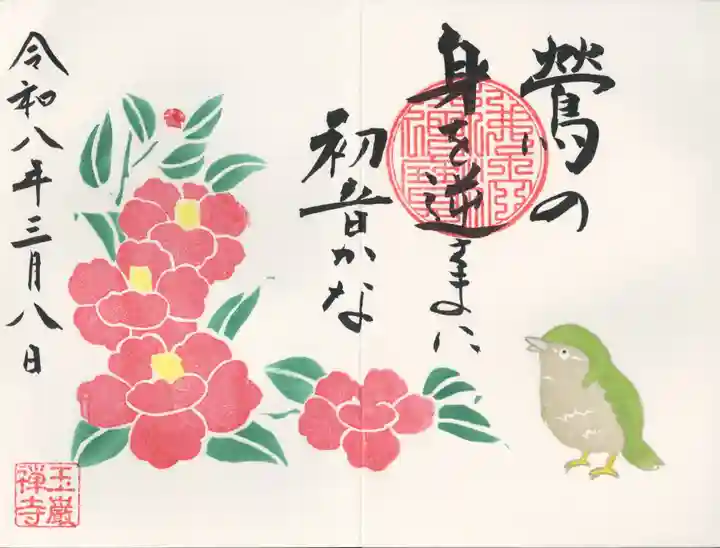 鶯の
身を逆さまに
初音かな
令和八年三月八日
玉巌
禅寺